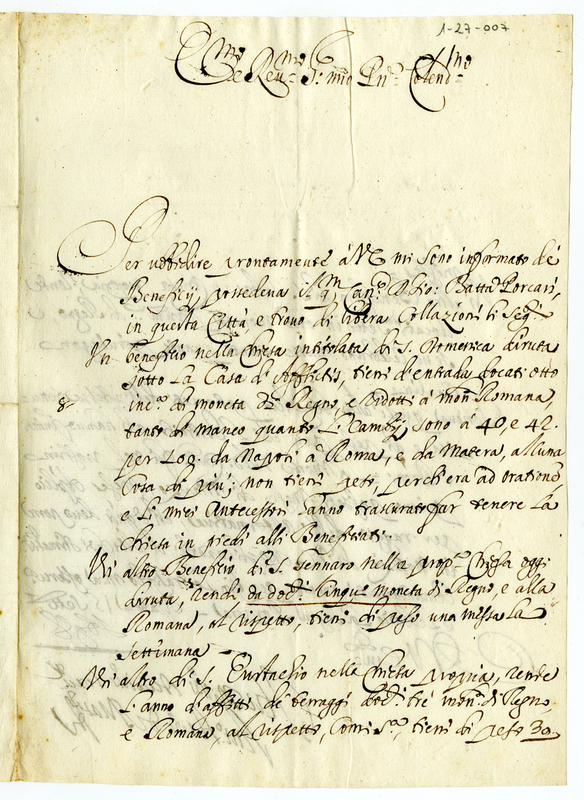 1-27-007
E.mo e Rev.mo S.r mio Pn.e Colend.mo
Per ubbidire prontamente à VE mi sono informato de
Beneficij, possedeva il q.m Can.co D. Gio: Batta Porcari,
in questa Città, e trovo di libera Collazioni li seg.ti
Un beneficio nella Chiesa intitolata di S. Domenica diruta
sotto La Casa d'Afflictis, tieni d'entrada docati otto
8- inc.a di moneta di Regno, e ridotti à mon.ta Romana,
tanto di manco quanto li Cambij, sono à 40, e 42.
per 100. da Napoli à Roma, e da Matera, alcuna
cosa di più; non tieni peso, perch'era ad orationẽ
e li miei Antecessori hanno trascurato far tenere la
Chiesa in piedi alli Beneficiati.
Un altro Beneficio di S. Gennaro nella prop.a Chiesa oggi
diruta, rendi da doc.ti cinque moneta di Regno, e alla
Romana, al rispetto, tieni di peso una messa la
settimana
Un altro di S. Eustachio nella Chiesa propria, rende
l'anno d'affitti de terraggi doc.ti tré mon.ta di Regno
e Romana, al rispetto, com.e S.a, tieni di peso 30